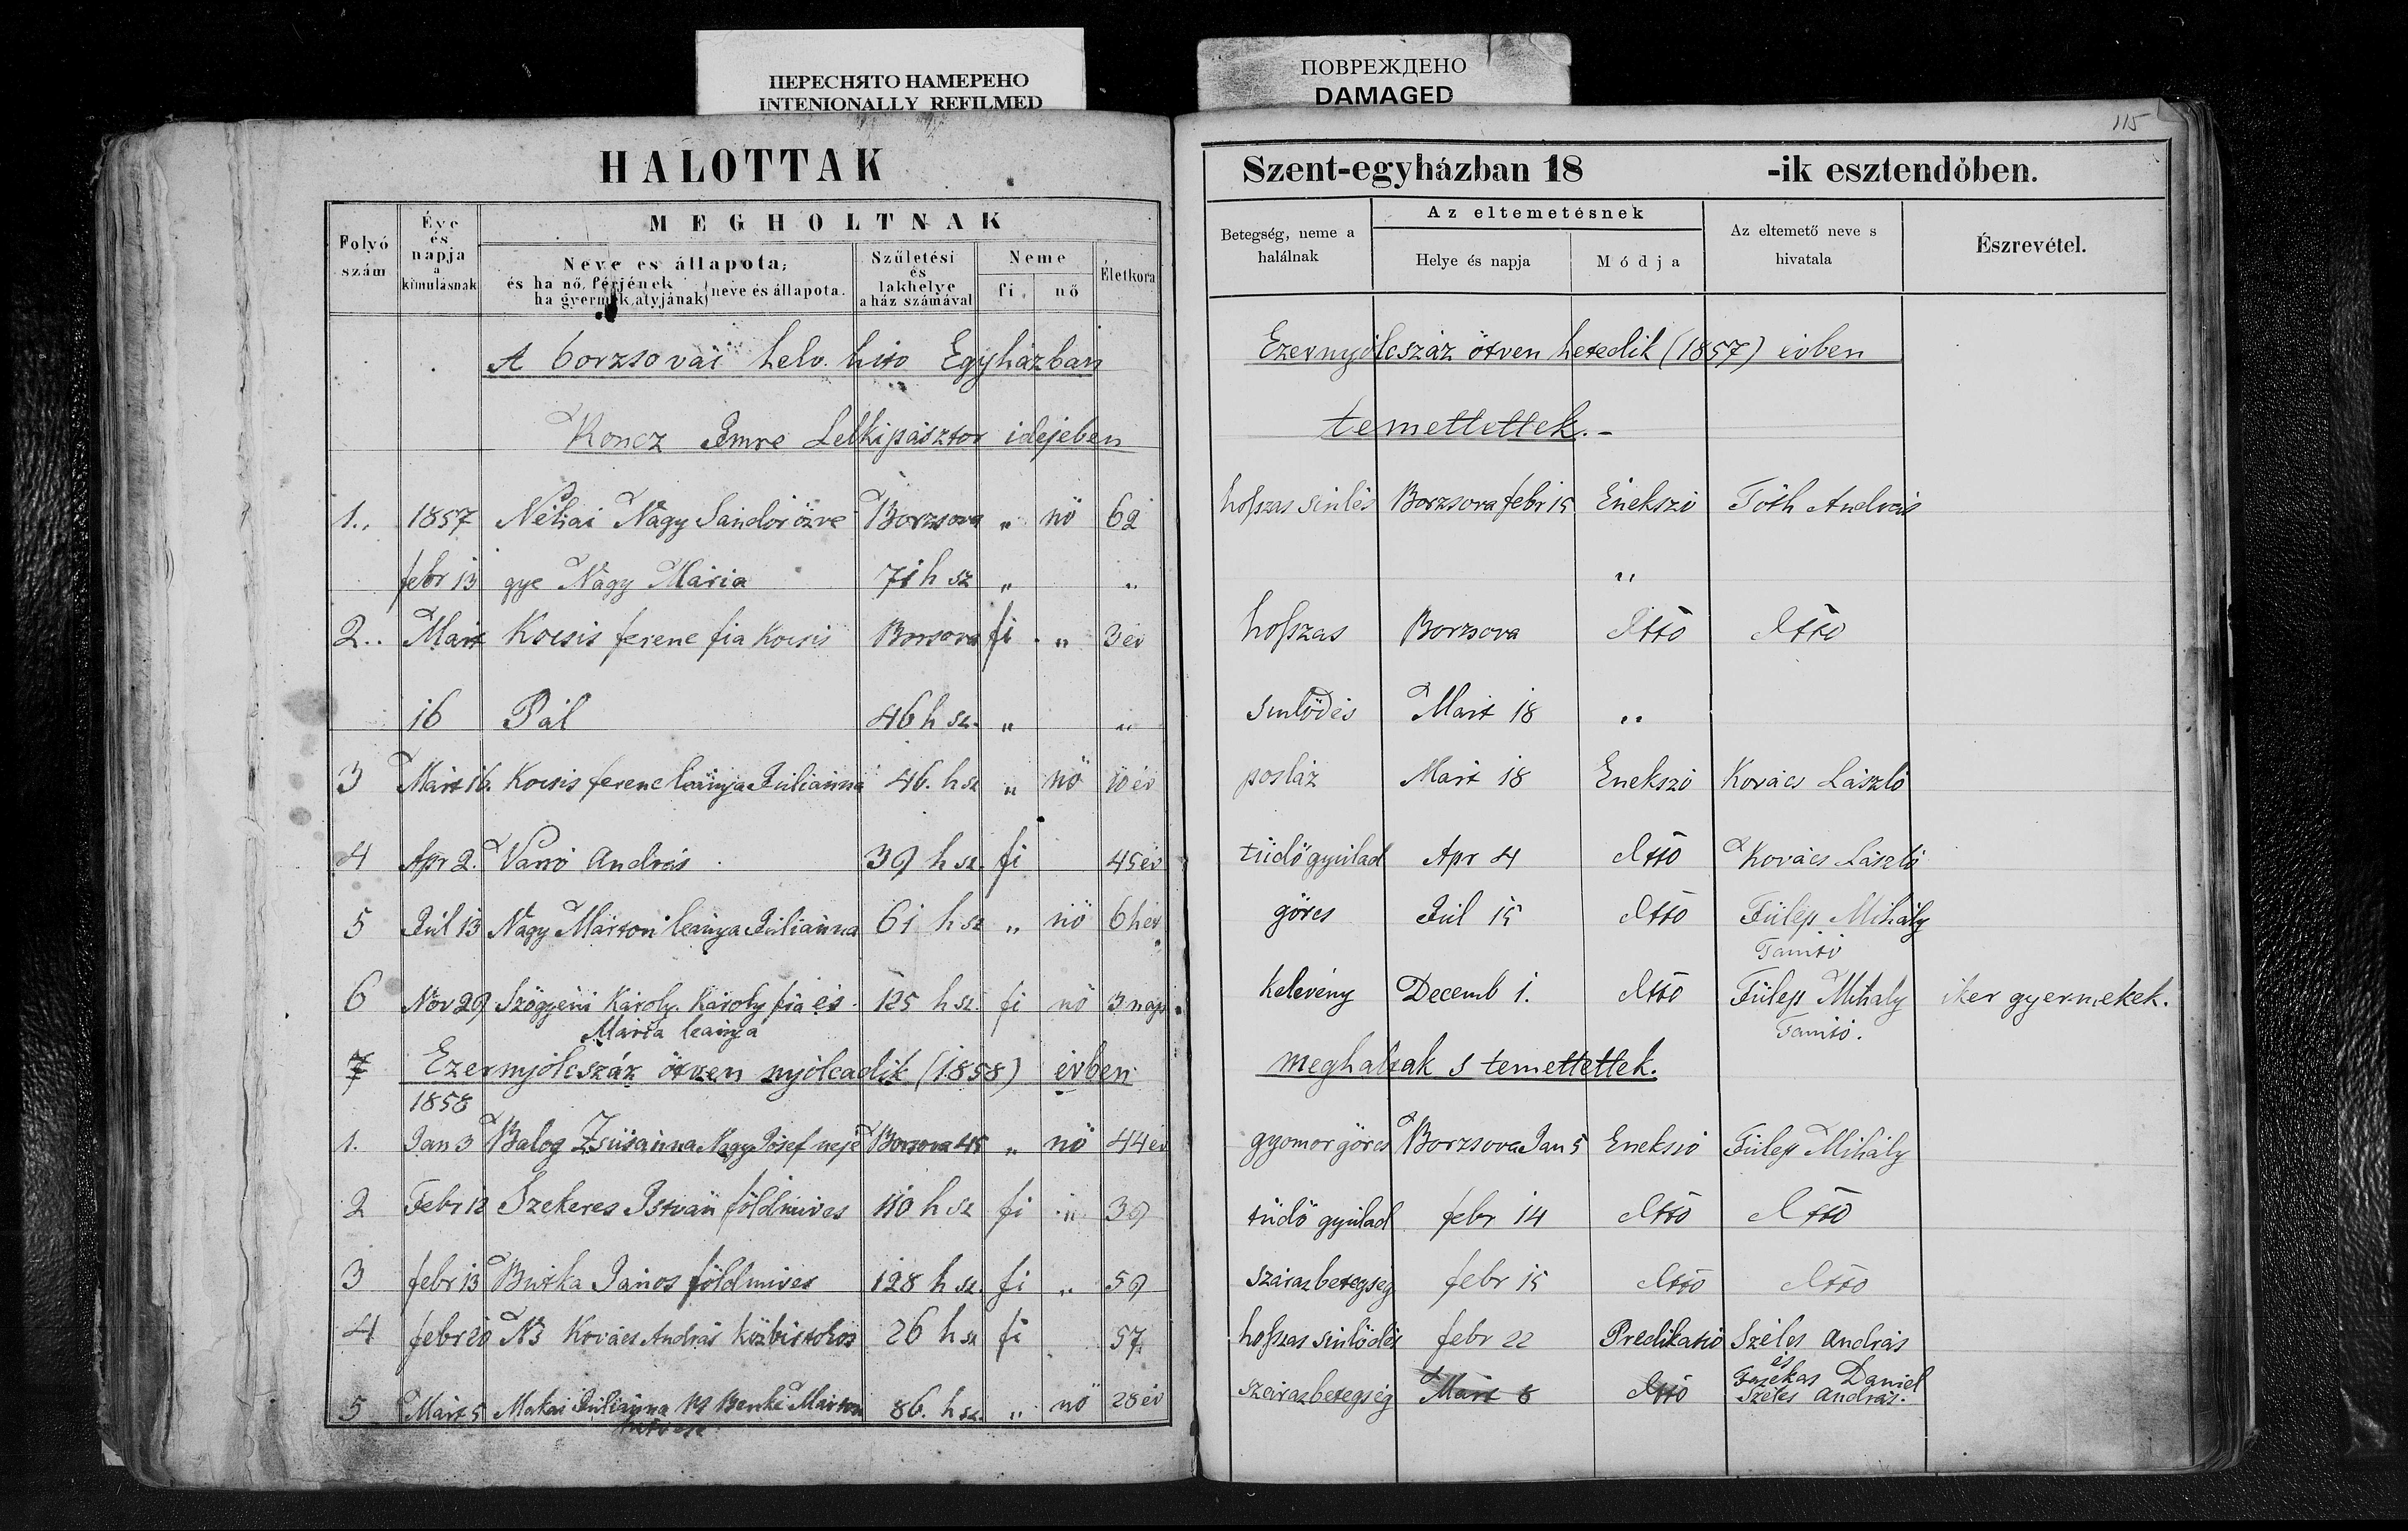 ПЕРЕСНЯТО НАМЕРЕНО
INTENIONALLY REFILMED
ПОВРЕЖДЕНО
DAMAGED
115
HALOTTAK
Szent-egyházban 18 -ik esztendőben.
Folyó szám
Éve és napja a kimulásnak
MEGHOLTNAK
Neve es állapota,
és ha nő, férjének
ha gyermek, atyjának
neve és állapota.
Születési és lakhelye a ház számával
Neme
fi
nő
Életkora
Betegség, neme a halálnak
Az eltemetésnek
Helye és napja
Módja
Az eltemető neve s hivatala
Észrevétel.
A borzsovai helv. hito Egyházban Ezernyólcszáz ötven hetedik (1857) évben
Koncz Imre Lelkipásztor idejében temettettek.-
1., 1857 Néhai Nagy Sándor özve Borzsova „ nö 62 hoſszas sinlés Borzsova febr 15 Énekszó Tóth András
febr 13 gye Nagy Mária 71 h sz „ „ „
2.. Mart Kocsis ferenc fia Kocsis Borsova fi „ 3 év hoſszas Borzsova dtto dtto
16 Pál 46 h sz. „ „ sinlődés Mart 18 „
3 Mart 16. Kocsis ferenc leánya Juliánna 46. h sz „ nö 10 év posláz Mart 18 Enekszó Kovács László
4 Apr 2. Varró András 39 h sz. fi 45 év tüdőgyulad Apr 4 dtto Kovács László
5 Júl 13 Nagy Márton leánya Juliánna 61 h sz „ nö 6 hét görcs Júl 15 dtto Fülep Mihály
Tanitó
6 Nov 29 Szögyéni Károly. Károly fia és 125 h sz. fi nö 3 nap kelevény Decemb 1. dtto Fülep Mihály iker gyermekek.
Mária leánya Tanitó.
7 Ezernyólcszáz ötven nyólcadik (1858) évben meghaltak s temettettek.
1858
1. Jan 3 Balog Zsuśanna Nagy Jósef neje Borsova 45 „ nö 44 év gyomorgörcs Borzsova Jan 5 Enekszó Fülep Mihály
2 Febr 12 Szekeres István földmives 110 h sz fi „ 39 tüdő gyulad febr 14 dtto dtto
3 febr 13 Burka János földmives 128 h sz. fi „ 59 szárazbetegség febr 15 dtto dtto
4 febr 20 Kovács András 26 h sz fi 57. hoſszas sinlődés febr 22 Predikatió Széles András
és
Fazekas Daniel
5 Mart 5 Makai Juliánna Benke Márton 86. h sz. „ nö 28 év szárazbetegség Mart 8 dtto Széles András.